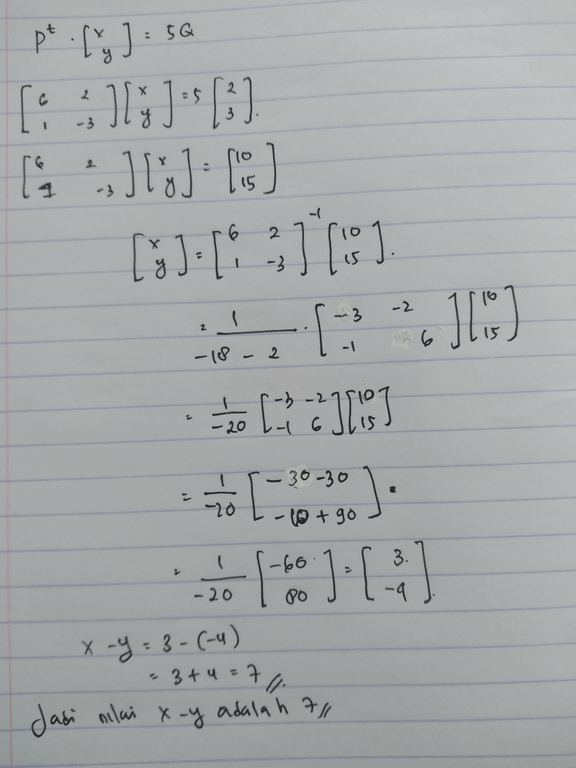 Pᵗ · [x y] = 5Q
[6 2 1 -3] [x y] = 5 [2 3].
[6 2 1 -3] [x y] = [10 15]
[x y] = [6 2 1 -3]⁻¹ [10 15].
= 1/(-18 - 2) · [-3 -2 -1 6] [10 15]
= 1/-20 [-3 -2 -1 6] [10 15]
= 1/-20 [-30 -30 -10 + 90].
= 1/-20 [-60 80] = [3 -4].
x - y = 3 - (-4)
= 3 + 4 = 7 //.
Jadi nilai x - y adalah 7 //